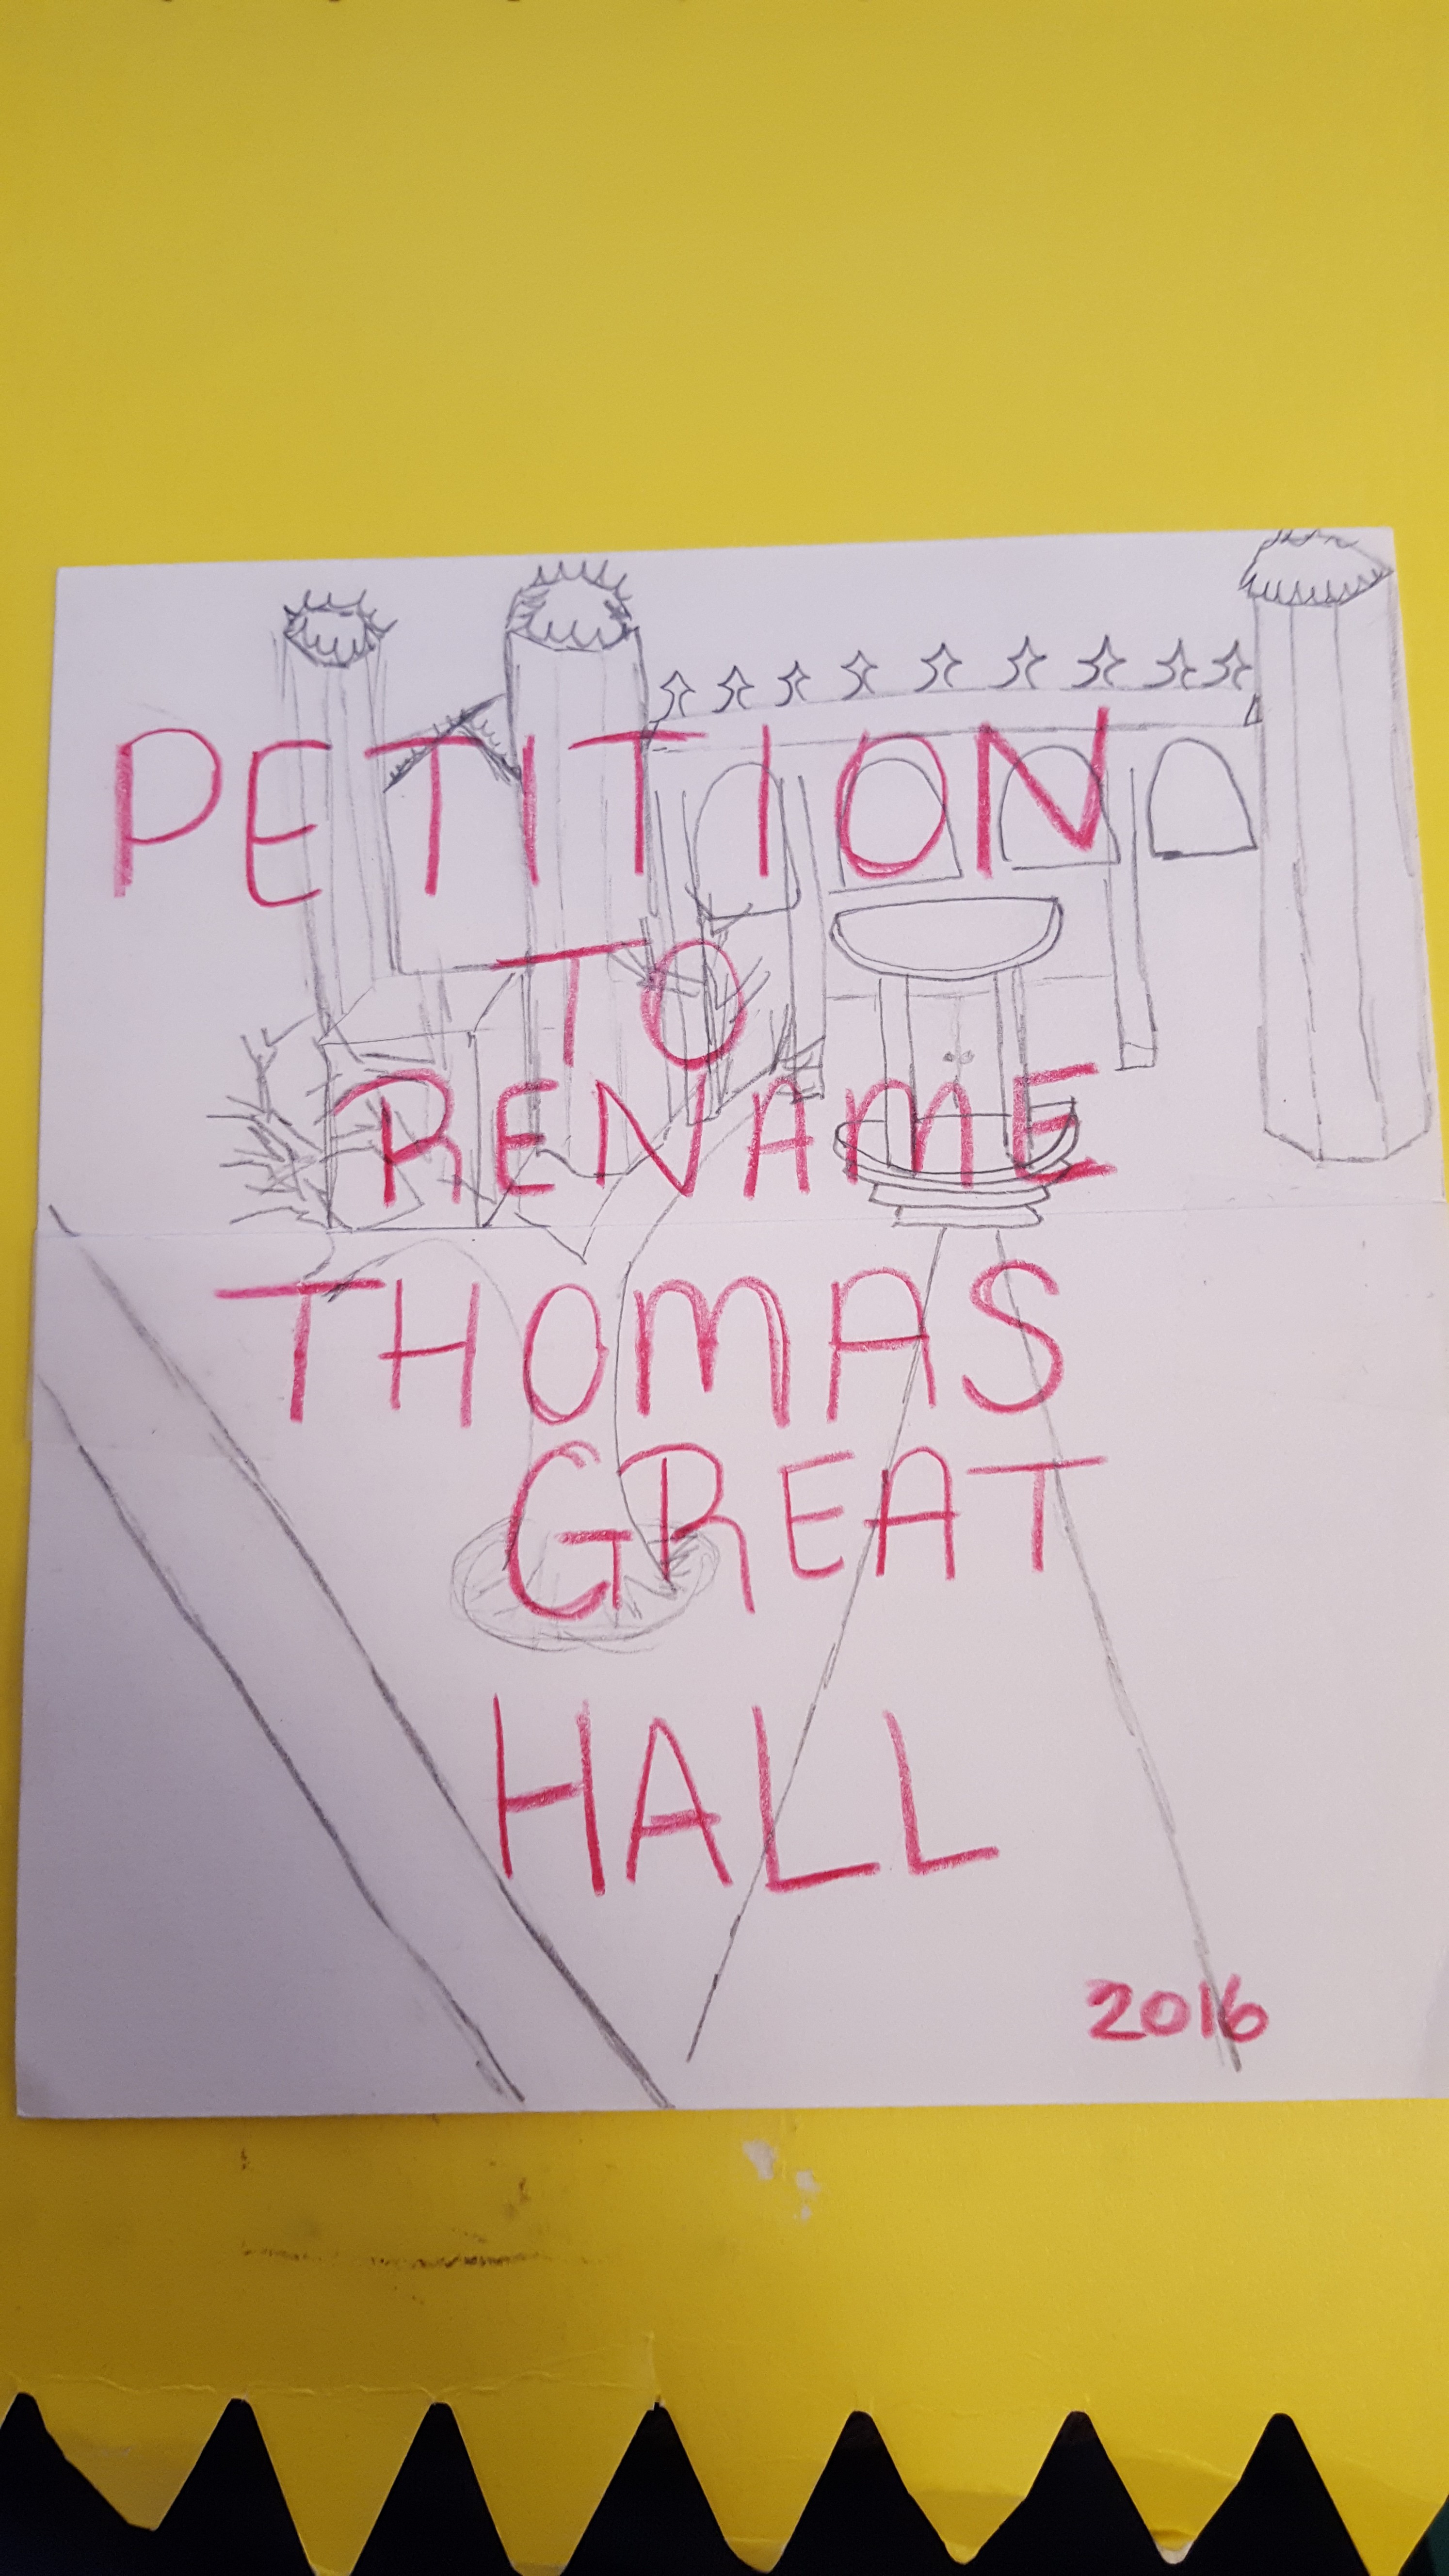 PETITION
TO
RENAME
THOMAS
GREAT
HALL
2016